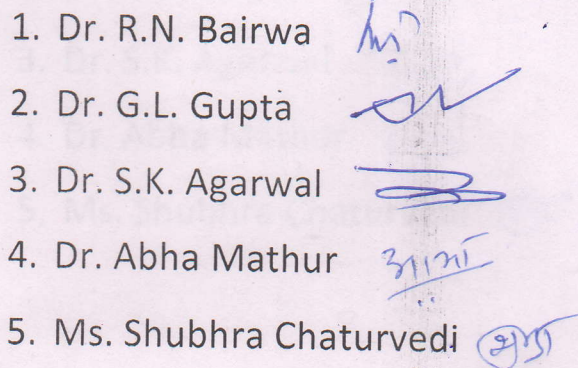 1. Dr. R.N. Bairwa
2. Dr. G.L. Gupta
3. Dr. S.K. Agarwal
4. Dr. Abha Mathur आभा
5. Ms. Shubhra Chaturvedi